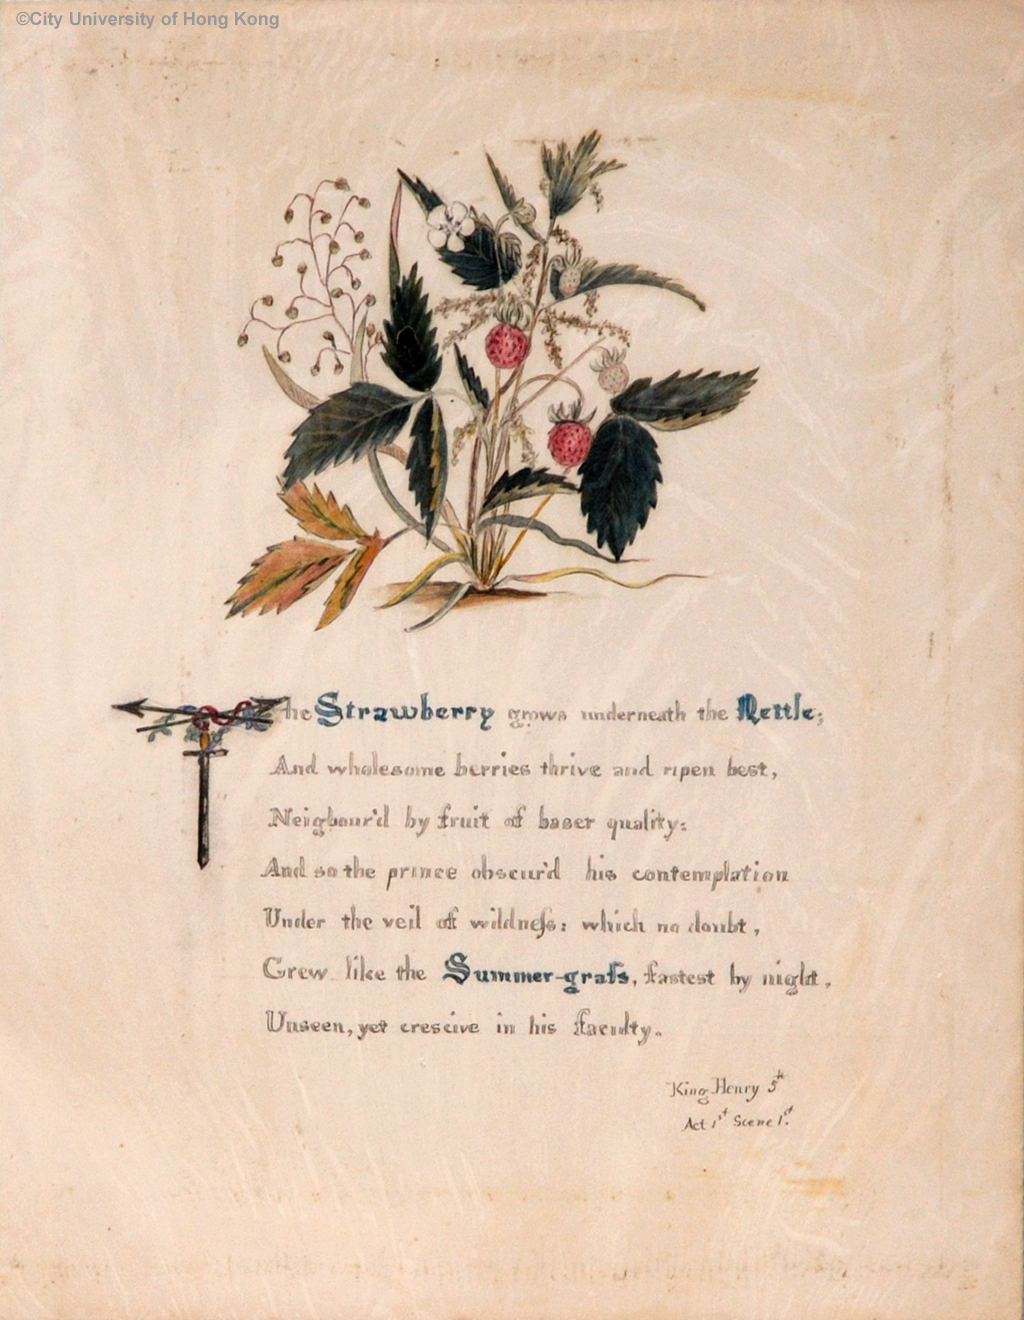 ©City University of Hong Kong
The Strawberry grows underneath the Nettle;
And wholesome berries thrive and ripen best,
Neigbour'd by fruit of baser quality:
And so the prince obscur'd his contemplation
Under the veil of wildneſs: which no doubt,
Grew like the Summer-graſs, fastest by night,
Unseen, yet crescive in his faculty.
King Henry 5th
Act 1st Scene 1st.